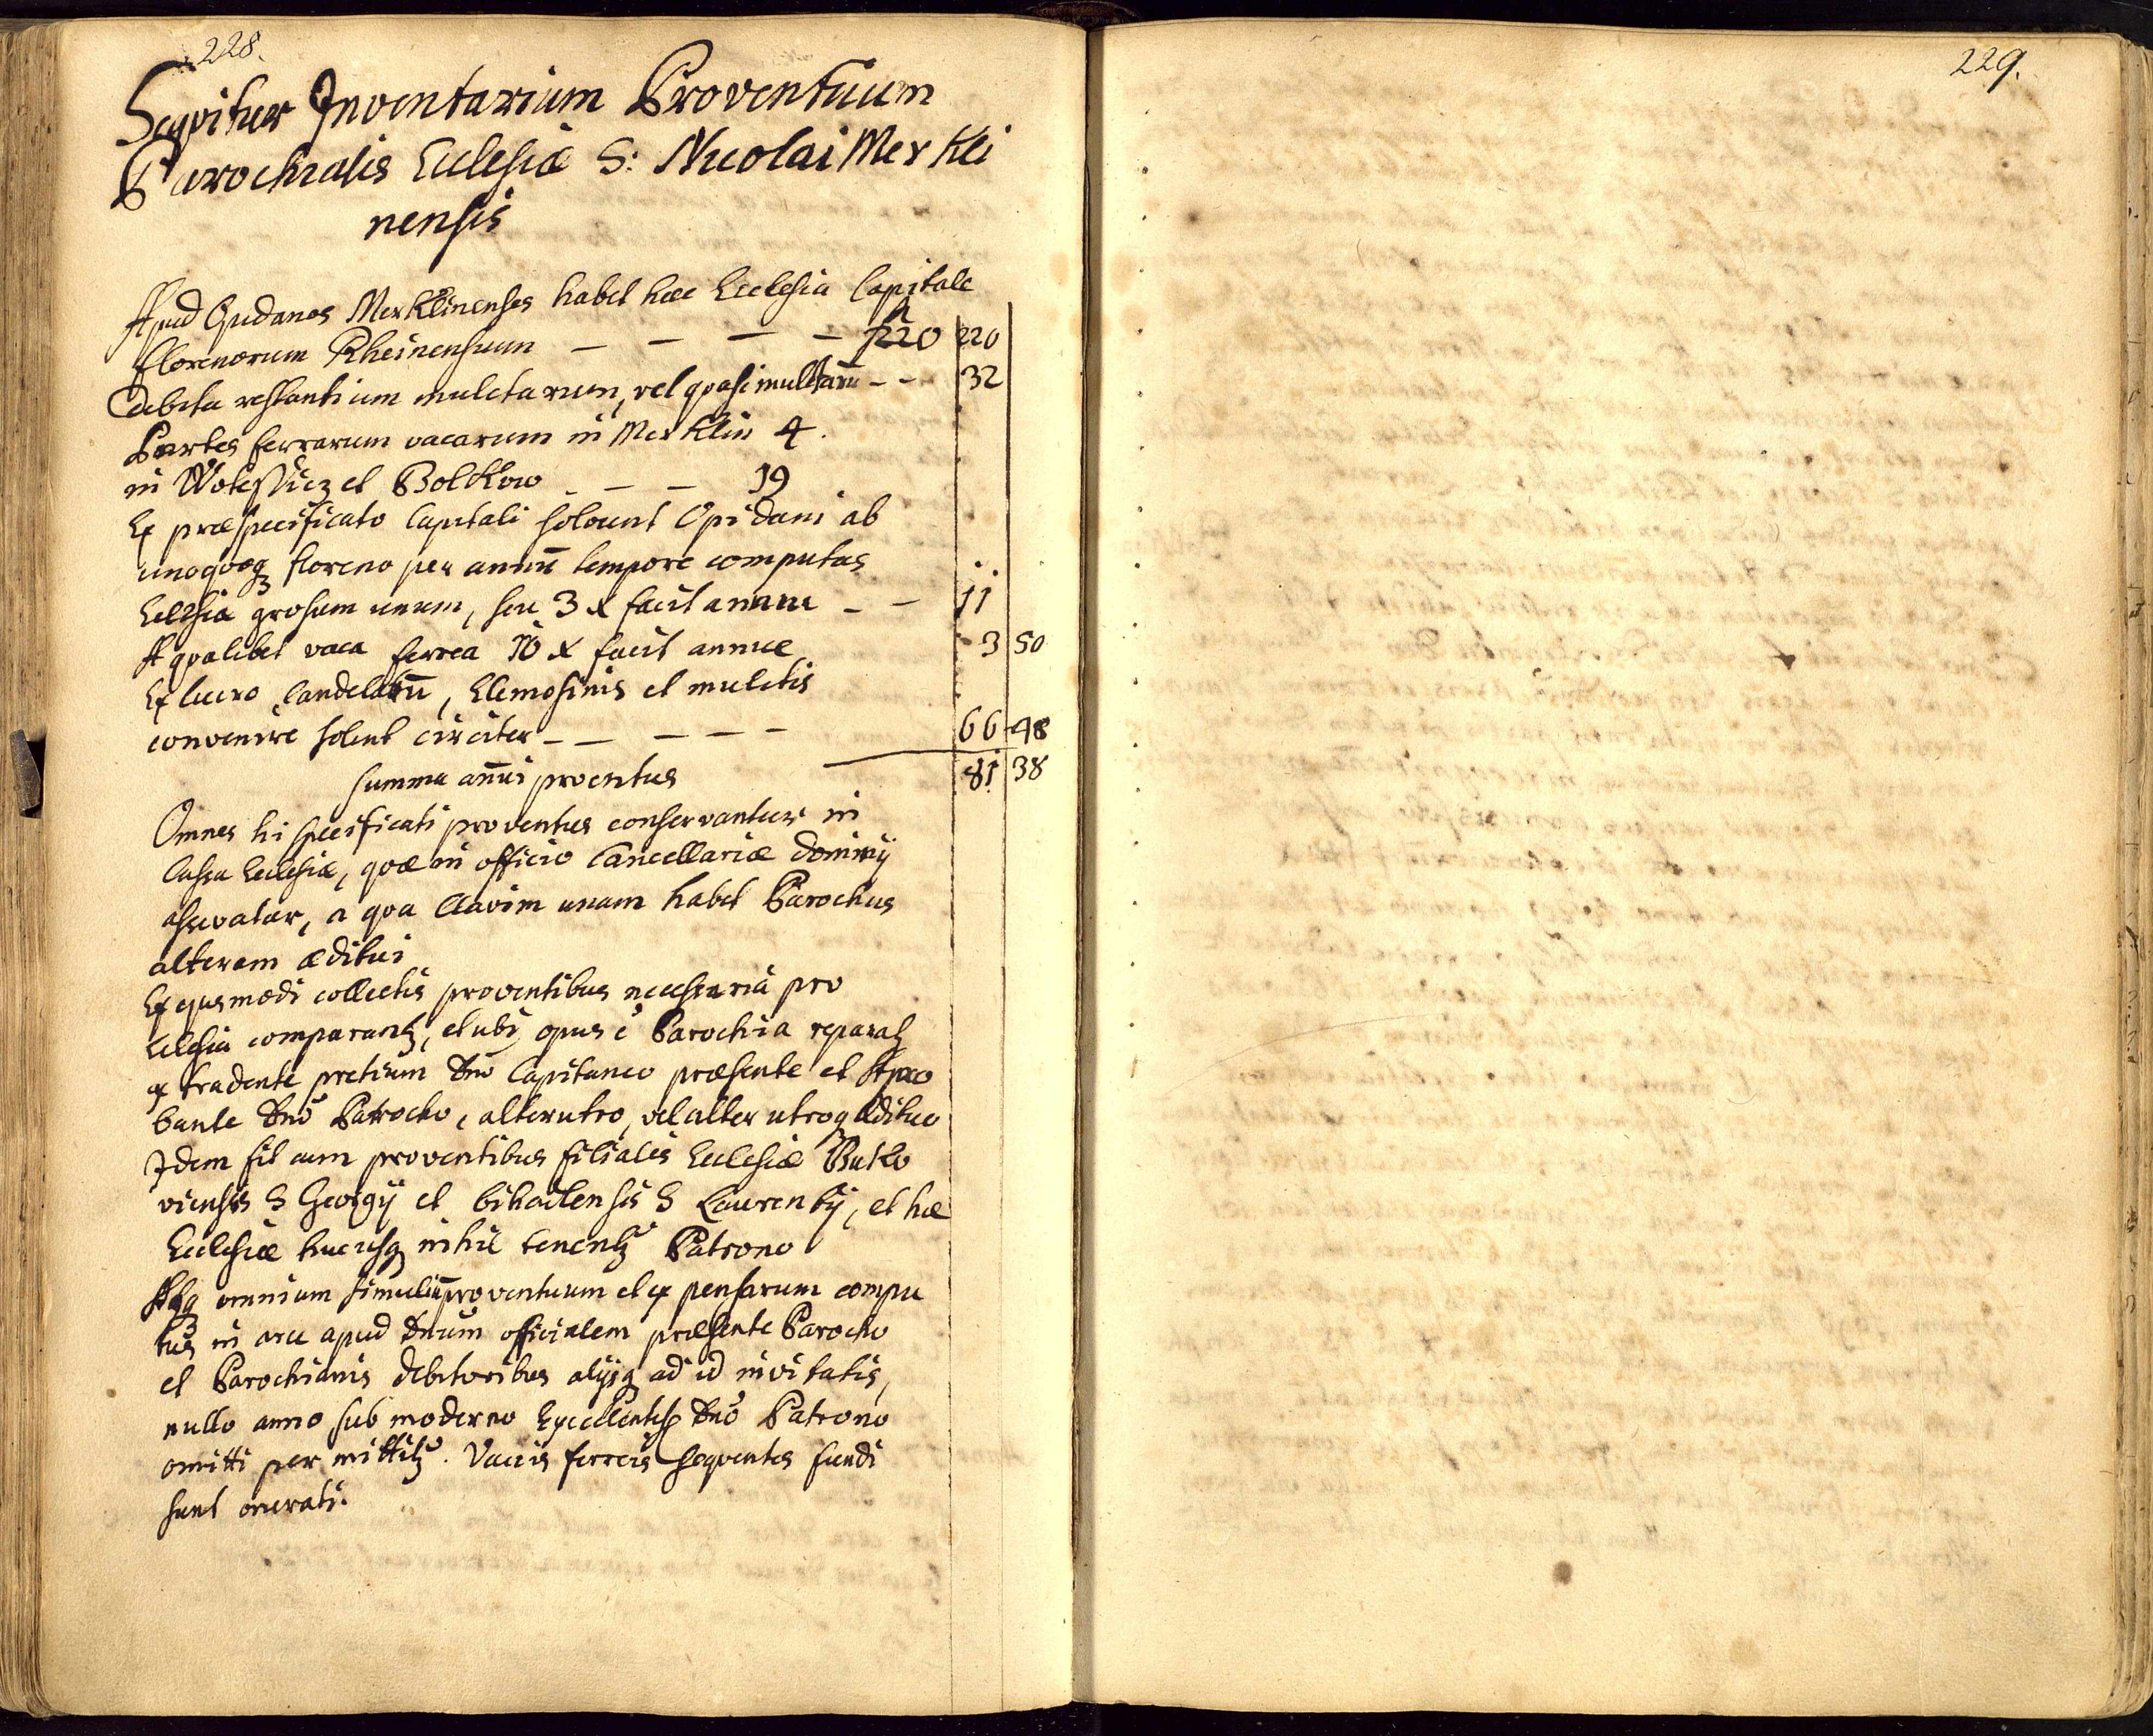 228.
Seqvitur Inventarium Proventuum
Parochialis Ecclesiæ S: Nicolai Merkli
nensis
Apud Opidanos Merklinenses habet hæc Ecclesia Capitale
florenorum Rheinensium — — — — 220 220
Debita restantium mulctarum, vel qvasi mulctarū - - 32
Partes ferrarum vacarum in Merklin 4.
in et Bolkow — — 19
Ex præspecificato Capitali solvunt Opidani ab
unoqvoqꝫ floreno per annū tempore computus
Eclesiæ grosum unum, seu 3 x facit annue - - 11
A qvalibet vaca ferrea 10 x facit annue 3 50
Ex lucro candelarū, Elemosinis et mulctis
convenire solent circiter - - - - - 66 48
summa aňui proventus 81 38
Omnes hi specificati proventus conservantur in
Cassa Ecclesiæ, qvæ in officio Cancellariæ dominij
asservatur, a qva Clavim unam habet Parochus
alteram æditui
Ex ejusmodi collectis proventibus necessaria pro
Eclesia comparantꝫ, et ubi opus ē Parochia reparatꝫ
extradente pretium Dnō Capitaneo præsente et Apro
bante Dnō Parocho, alterutro, vel alter utroqꝫ Ædituo
Idem fit cum proventibus filialis Ecclesiæ Butko
viensis S Georgij et S Laurentij, et hæ
Ecclesiæ hucusqꝫ nihil tenentꝫ Patrono
Atqꝫ omnium simul proventuum et expensarum compu
tus in arce apud Dnūm officialem præsente Parocho
et Parochianis debitoribus alijsqꝫ ad id invitatis,
nullo anno sub moderno Excellentiss Dnō Patrono
omitti permittitꝫ. Vaccis ferreis seqventes fundi
sunt onerati.
229.